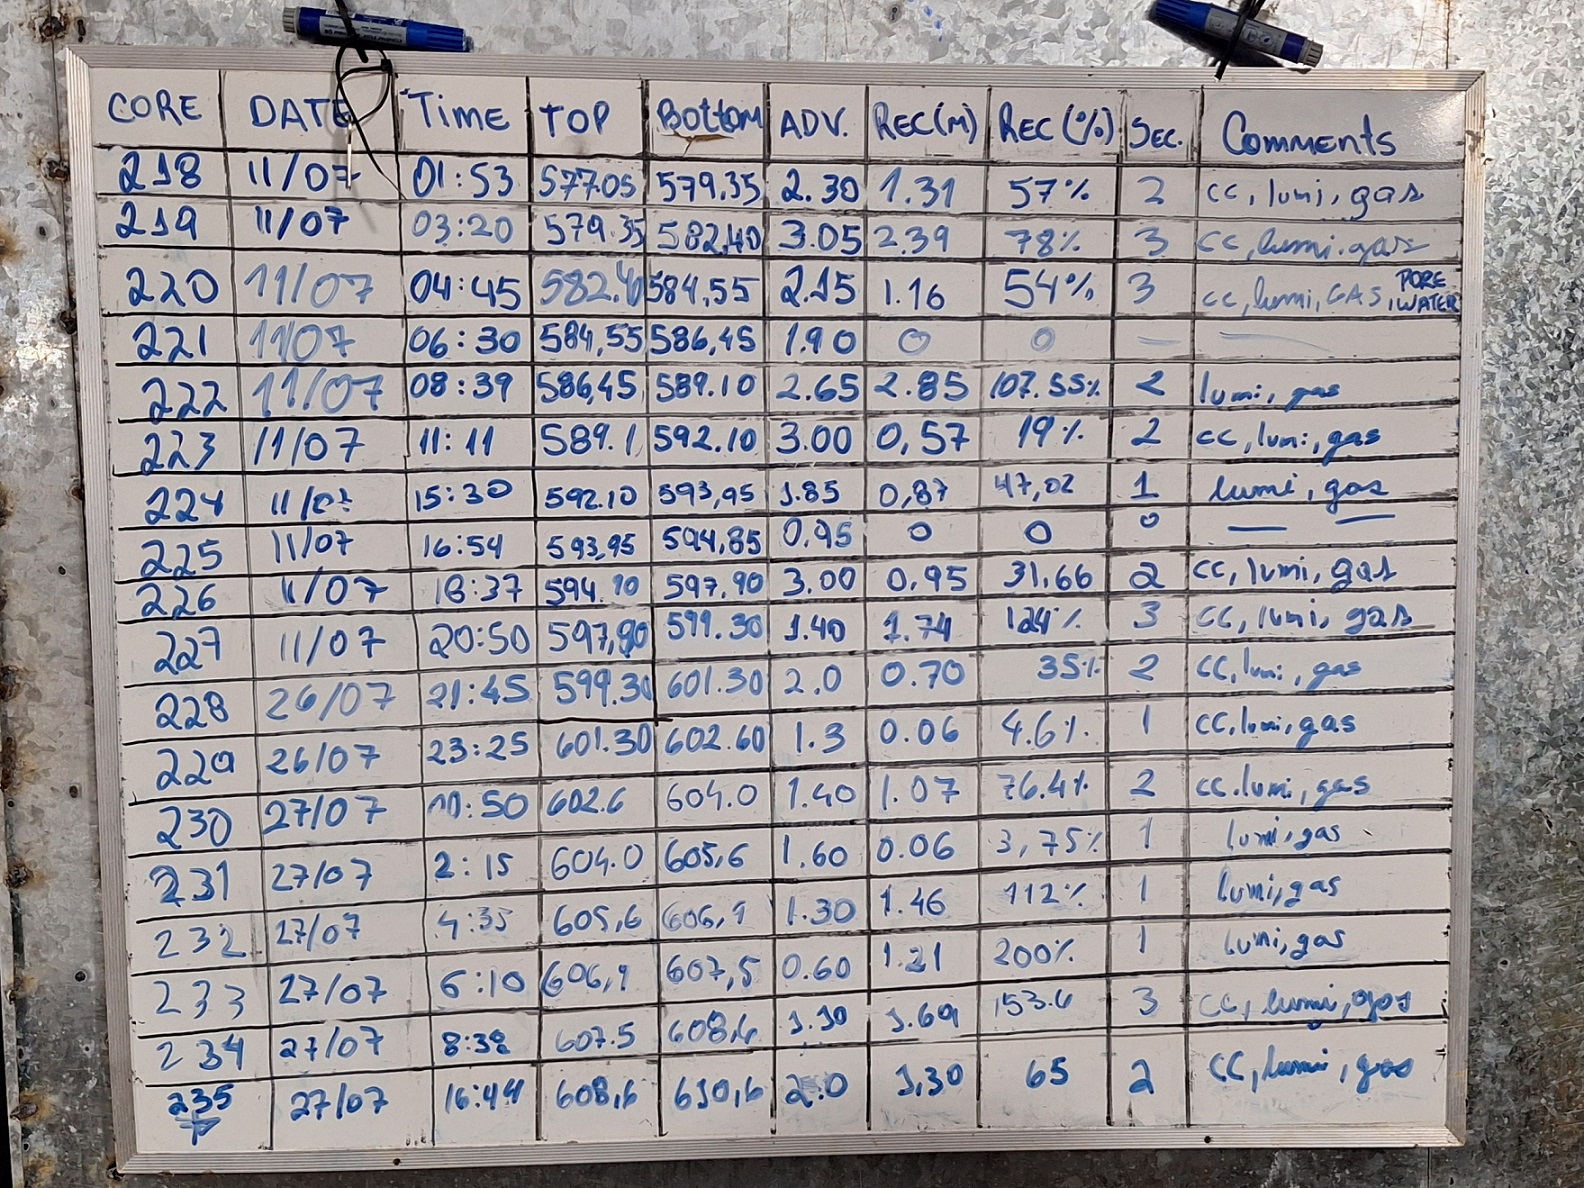 CORE DATE TIME TOP Bottom ADV. REC(M) REC(%) SEC. Comments
218 11/07 01:53 577.05 579.35 2.30 1.31 57% 2 cc, lumi, gas
219 11/07 03:20 579.35 582,40 3.05 2.39 78% 3 cc, lumi.gas
220 11/07 04:45 582.40 584,55 2.15 1.16 54% 3 cc, lumi, GAS, PORE WATER
221 11/07 06:30 584,55 586,45 1.90 0 0 — —
222 11/07 08:39 586,45 589.10 2.65 2.85 107.55% 2 lumi, gas
223 11/07 11:11 589.1 592.10 3.00 0,57 19% 2 cc, lumi, gas
224 11/07 15:30 592.10 593,95 1.85 0,87 47,02 1 lumi, gas
225 11/07 16:54 593,95 594,85 0.95 0 0 0 — —
226 11/07 18:37 594.90 597,90 3.00 0.95 31.66 2 cc, lumi, gas
227 11/07 20:50 597,90 599.30 1.40 1.74 124% 3 cc, lumi, gas
228 26/07 21:45 599.30 601.30 2.0 0.70 35% 2 cc, lumi, gas
229 26/07 23:25 601.30 602.60 1.3 0.06 4.6% 1 cc, lumi, gas
230 27/07 00:50 602.6 604.0 1.40 1.07 76.4% 2 cc. lumi, gas
231 27/07 2:15 604.0 605,6 1.60 0.06 3,75% 1 lumi, gas
232 27/07 4:35 605,6 606,9 1.30 1.46 112% 1 lumi, gas
233 27/07 6:10 606,9 607,5 0.60 1.21 200% 1 lumi, gas
234 27/07 8:38 607.5 608,6 1.10 1.69 153.6 3 cc, lumi, gas
235 27/07 16:44 608,6 610,6 2.0 1,30 65 2 cc, lumi, gas